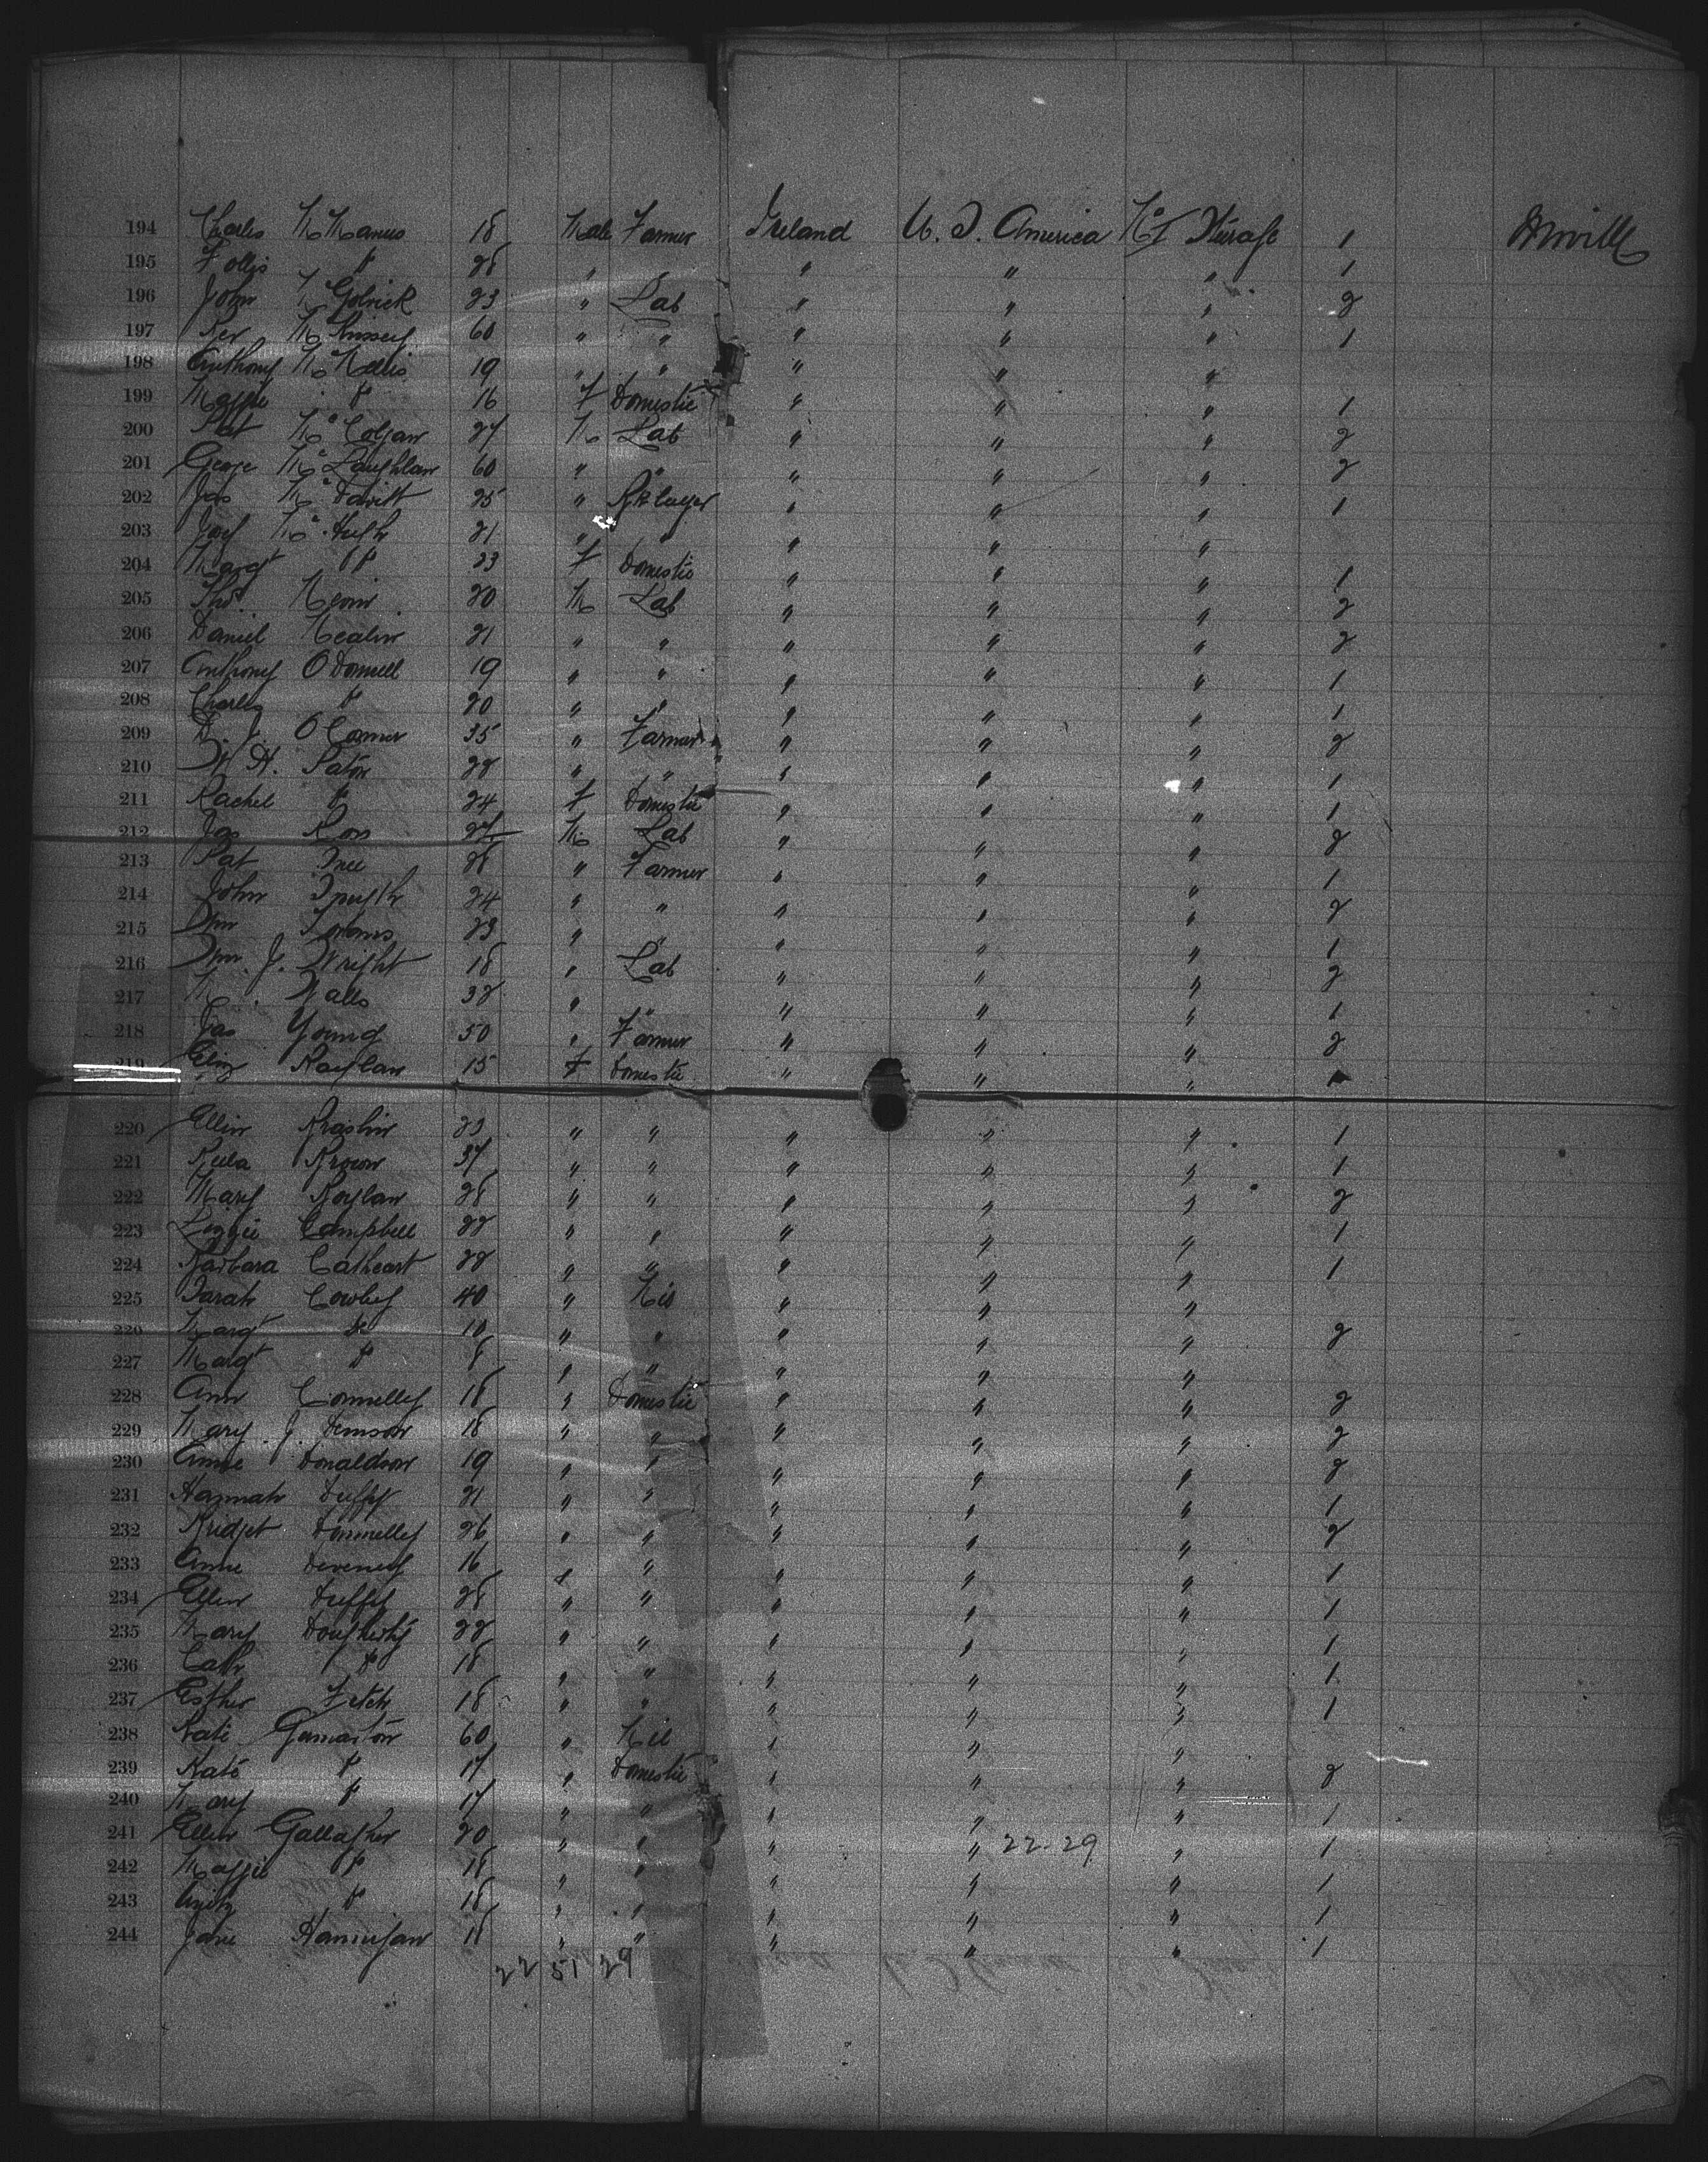 194 Charles McManus 18 Male Farmer Ireland U. S. America No 1 Steerage 1 Moville
195 28 " " " " 1
196 John McGolrick 23 " Lab " " " 2
197 60 " " " " " 1
198 Anthony McNelis 19 " " " " "
199 Maggie Do 16 F Domestic " " " 1
200 Pat McColgan 27 M Lab " " " 2
201 George McLaughlan 60 " " " " " 2
202 Jas McDavitt 25 " Bk layer " " " 1
203 McHugh 21 " " " " "
204 Margt Do 23 F Domestic " " " 1
205 Thos. 20 M Lab " " " 2
206 Daniel Nealin 21 " " " " " 2
207 Anthony O'Donnell 19 " " " " " 1
208 Charles Do 20 " " " " " 1
209 D. J. O'Connor 35 " Farmer " " " 2
210 W. H. Paton 22 " " " " " 1
211 Rachel Do 24 F Domestic " " " 1
212 Jas Ross 27 M Lab " " " 2
213 Pat 28 " Farmer " " " 1
214 John Smyth 24 " " " " " 2
215 Wm 23 " " " " " 1
216 Wm. J. Wright 18 " Lab " " " 2
217 M. Walls 32 " " " " " 1
218 Jas Young 50 " Farmer " " " 2
219 Eliz Boylan 15 F Domestic " " " 1
220 Ellen 23 " " " " " 1
221 Brown 37 " " " " " 1
222 Mary Boylan 28 " " " " " 2
223 Lizzie Campbell 22 " " " " " 1
224 Barbara Cathcart 22 " " " " " 1
225 Sarah Cowley 40 " Nil " " "
226 Margt Do 10 " " " " " 2
227 Margt Do 8 " " " " "
228 Ann Connelly 18 " Domestic " " " 2
229 Mary J. Denison 18 " " " " " 2
230 Annie Donaldson 19 " " " " " 2
231 Hannah Duffy 21 " " " " " 1
232 Bridget Donnelly 26 " " " " " 2
233 Anne Deveney 16 " " " " " 1
234 Ellen Duffy 28 " " " " " 1
235 Mary Dougherty 22 " " " " " 1
236 Cath Do 18 " " " " " 1
237 Esther 18 " " " " " 1
238 Kate 60 " Nil " " "
239 Kate Do 17 " Domestic " " " 2
240 Mary Do 17 " " " " " 1
241 Ellen Gallagher 20 " " " " 22-29 " 1
242 Maggie Do 18 " " " " " 1
243 Do 18 " " " " " 1
244 Jane Hannigan 18 " " " " " 1
22 51 29